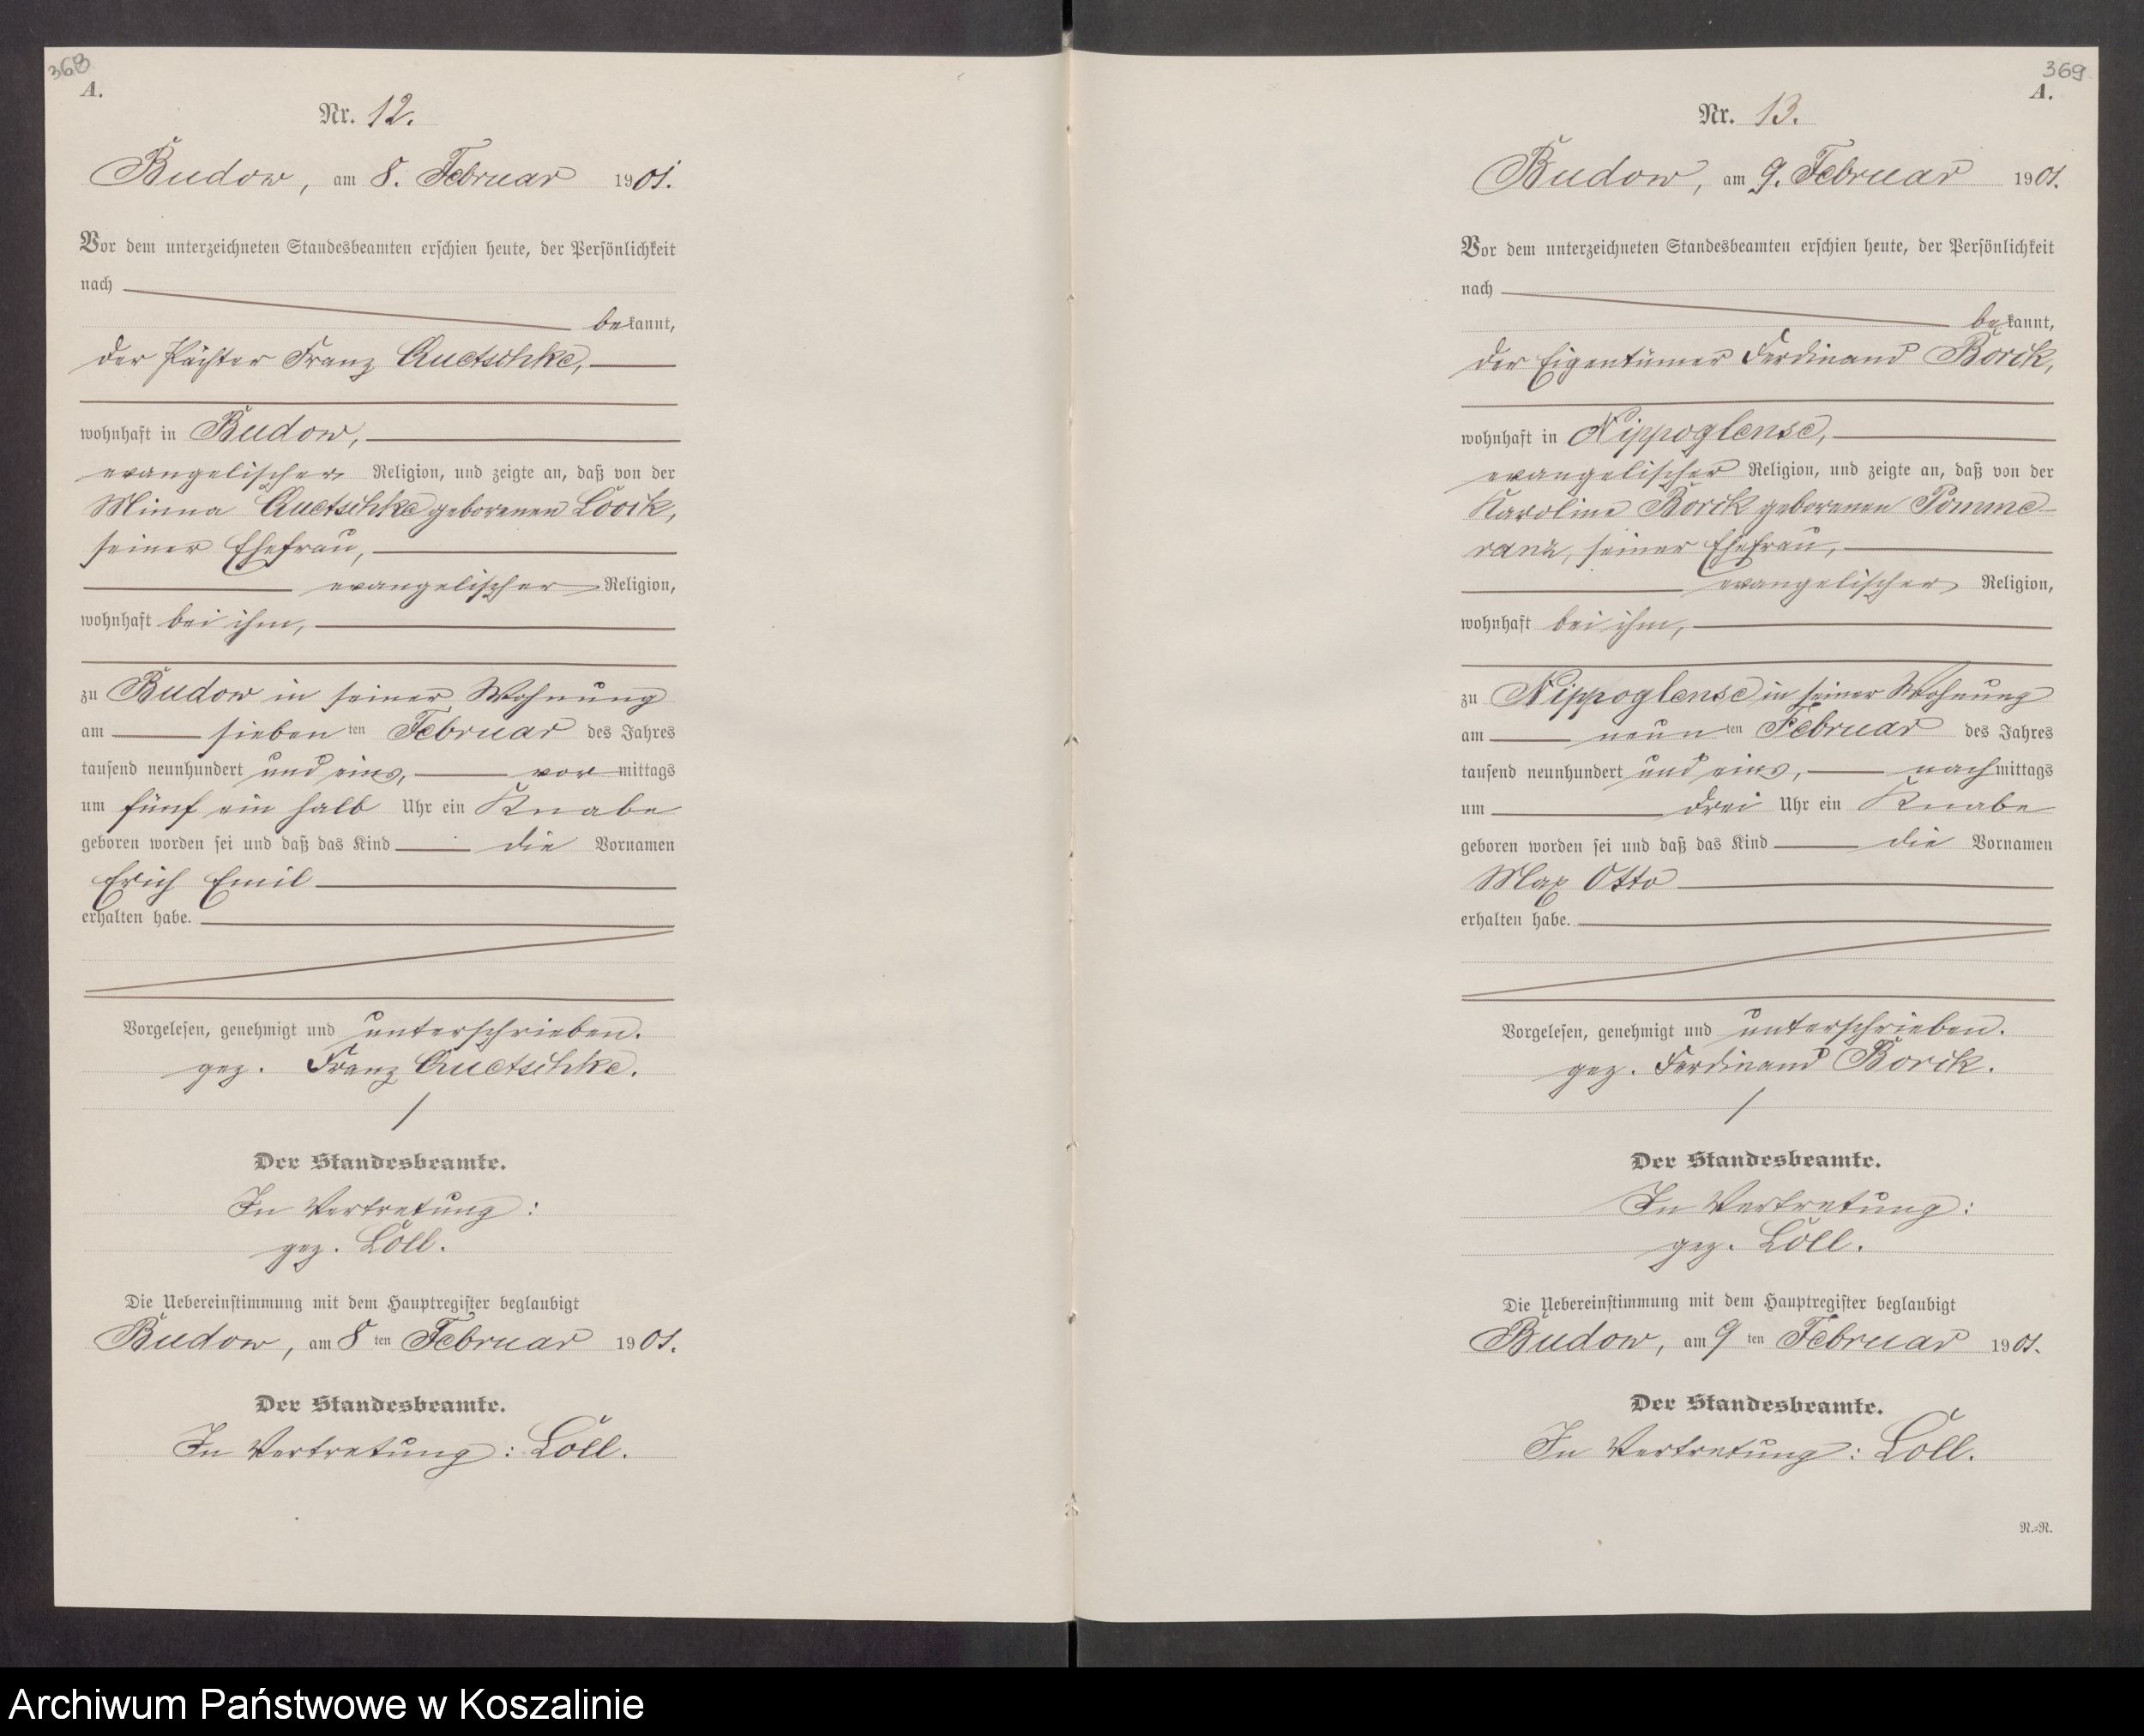 368
A.
Nr. 12.
Budow, am 8. Februar 1901.
Vor dem unterzeichneten Standesbeamten erschien heute, der Persönlichkeit
nach
bekannt,
der Pächter Franz Quetschke,
wohnhaft in Budow,
evangelischer Religion, und zeigte an, daß von der
Minna Quetschke geborenen
seiner Ehefrau,
evangelischer Religion,
wohnhaft bei ihm,
zu Budow in seiner Wohnung
am sieben ten Februar des Jahres
tausend neunhundert und eins, vor mittags
um fünf ein halb Uhr ein Knabe
geboren worden sei und daß das Kind die Vornamen
Erich Emil
erhalten habe.
Vorgelesen, genehmigt und unterschrieben.
gez. Franz Quetschke.
Der Standesbeamte.
In Vertretung:
gez. Löll.
Die Uebereinstimmung mit dem Hauptregister beglaubigt
Budow, am 8 ten Februar 1901.
Der Standesbeamte.
In Vertretung: Löll.
369
A.
Nr. 13.
Budow, am 9. Februar 1901.
Vor dem unterzeichneten Standesbeamten erschien heute, der Persönlichkeit
nach
bekannt,
der Eigentümer Ferdinand Borck,
wohnhaft in Nippoglense,
evangelischer Religion, und zeigte an, daß von der
Karoline Borck geborenen Pomme-
ranz, seiner Ehefrau,
evangelischer Religion,
wohnhaft bei ihm,
zu Nippoglense in seiner Wohnung
am neun ten Februar des Jahres
tausend neunhundert und eins, nach mittags
um drei Uhr ein Knabe
geboren worden sei und daß das Kind die Vornamen
Max Otto
erhalten habe.
Vorgelesen, genehmigt und unterschrieben.
gez. Ferdinand Borck.
Der Standesbeamte.
In Vertretung:
gez. Löll.
Die Uebereinstimmung mit dem Hauptregister beglaubigt
Budow, am 9 ten Februar 1901.
Der Standesbeamte.
In Vertretung: Löll.
N.=N.
Archiwum Państwowe w Koszalinie